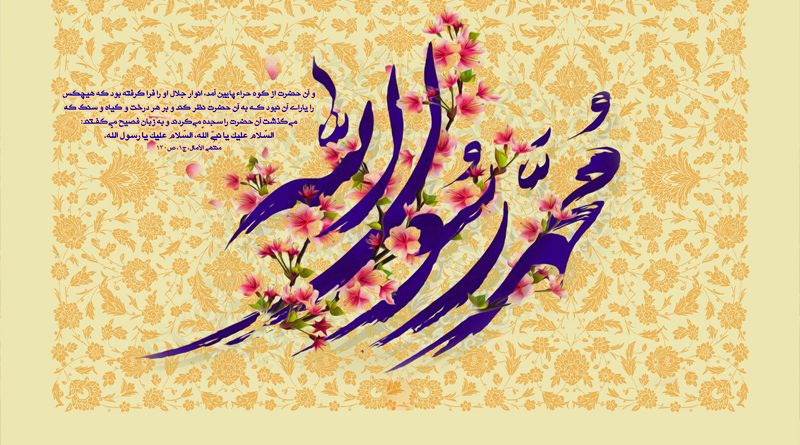 محمد رسول الله
و آن حضرت از کوه حراء پایین آمد، انوار جلال او را فرا گرفته بود که هیچکس
را یارای آن نبود که به آن حضرت نظر کند و بر هر درخت و گیاه و سنگ که
می‌گذشت آن حضرت را سجده می‌کردند و به زبان فصیح می‌گفتند:
السّلام علیك یا نبیّ الله، السّلام علیك یا رسول الله.
منتهی الآمال، ج۱، ص ۱۳۰